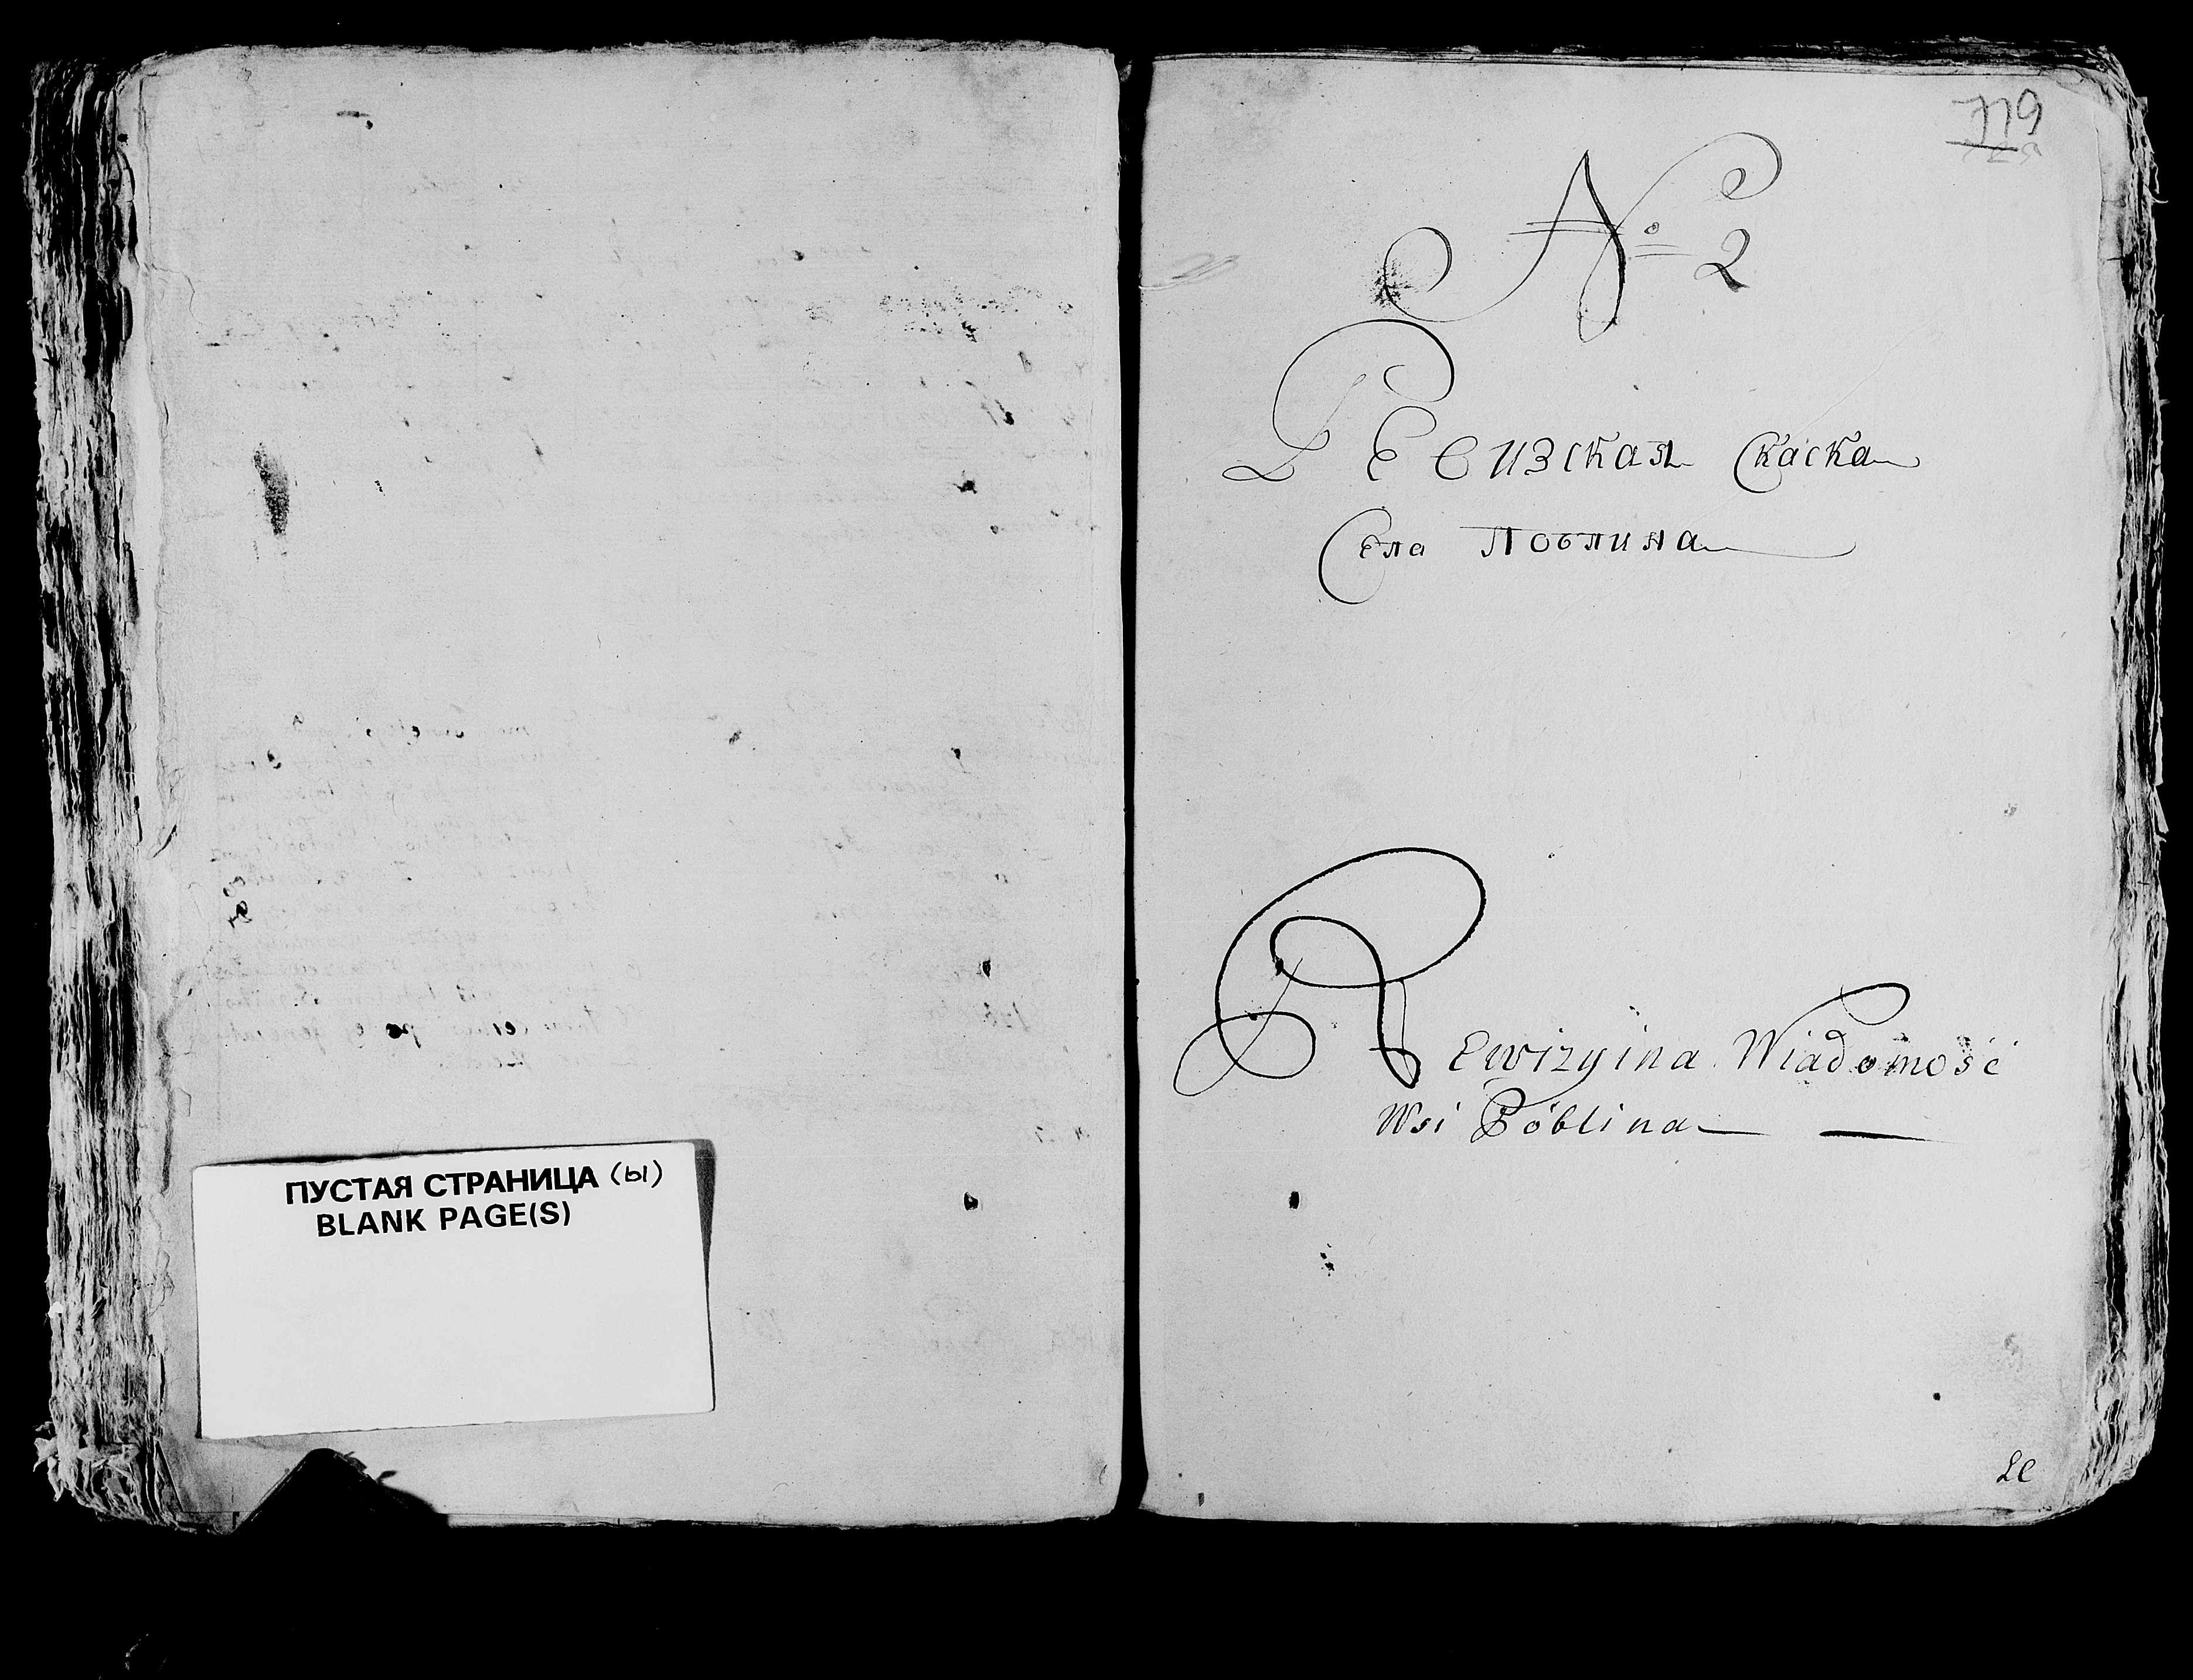 ПУСТАЯ СТРАНИЦА (ы)
BLANK PAGE(S)
719
№ 2
Ревизская Скаска
Села Поблина
Rewizyina Wiadomość
Wsi Póblina